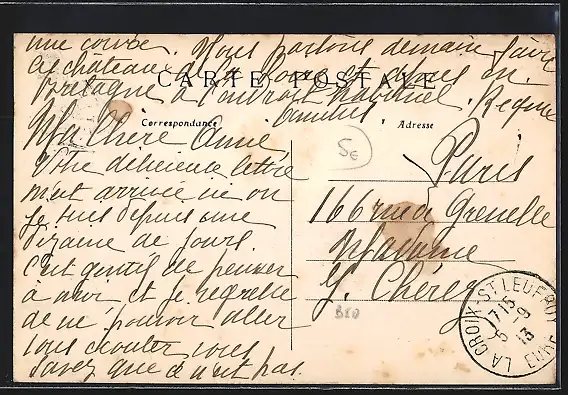 une courbe. Nous partons demain faire
les châteaux de la Loire et après en
Bretagne à l'endroit habituel. Reçue
CARTE POSTALE
Correspondance
Adresse
Ma Chère Anne
Votre délicieuse lettre
m'est arrivée ici où
je suis depuis une
dizaine de jours.
C'est gentil de penser
à moi et je regrette
de ne pouvoir aller
vous écouter vous
savez que ce n'est pas
5€
Paris
166 rue de Grenelle
Madame
G. Chéreq
BRO
LA CROIX-ST LEUFROY
17 15
5 -9
13
EURE